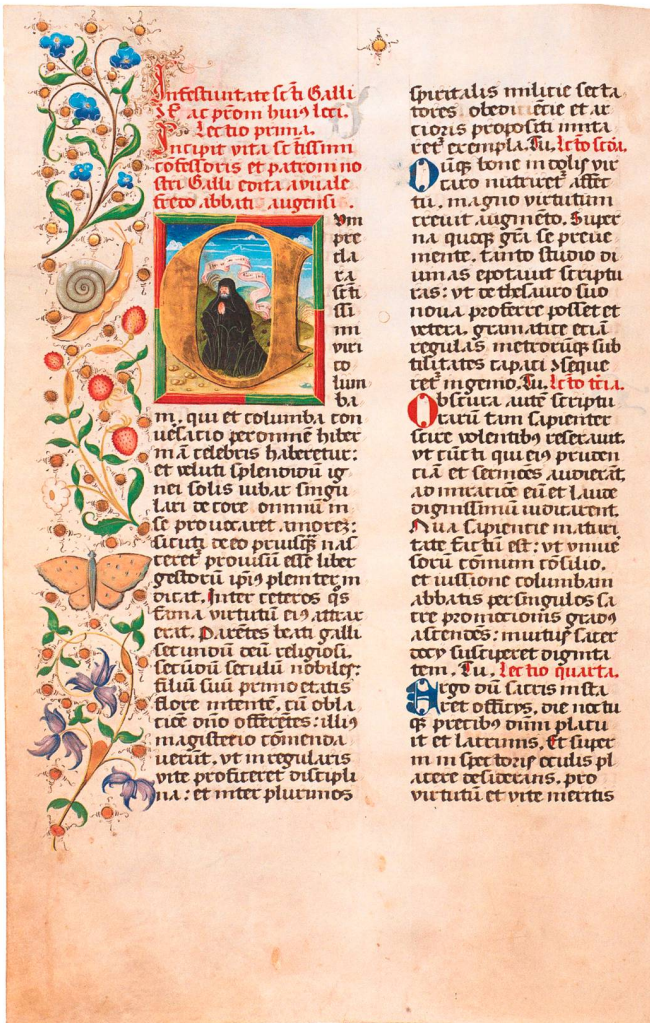 In festiuitate sc̄ti Galli
ac pr̄om huiꝯ loci.
Lectio prima.
Incipit vita sc̄tissimi
cōfessoris et patroni no
stri Galli edita a wale
fredo abbati augensi.
C
vm
pre
cla
ra
sc̄ti
ssi
mi
viri
co
lum
ba
m. qui et columba con
uersatio per omnē hiber
niā celebris haberetur:
et veluti splendidū ig
nei solis iubar singu
lari decore omnium in
se prouocaret amorez:
sicuti de eo priusq̄ƺ nas
ceret᷑ prouisū esse liber
gestorū ip̄iꝯ pleniter in
dicat. Inter ceteros q̄s
fama virtutū eiꝯ attrax
erat. Parētes beati galli
secundū deū religiosi.
secūdū seculū nobiles:
filiū suū primo etatis
flore nitentē. cū obla
tiōe dn̄o offerētes: illiꝯ
magisterio cōmenda
uerūt. vt in regularis
vite proficeret discipli
na: et inter plurimos
spiritalis militie secta
tores obedientie et ar
tioris propositi imita
ret᷑ exempla. Tu. Lc̄to sc̄da.
Cūq̄ƺ bone indolis vir
tutū nutriret᷑ affec
tu. magno virtutum
creuit augmēto. Super
na quoqƺ gr̄a se preue
niente. tanto studio di
uinas epotauit scriptu
ras: vt de thesauro suo
noua proferre posset et
vetera. gramatice etiā
regulas metrorūqƺ sub
tilitates capaci ꝯseque
ret᷑ ingenio. Tu. Lc̄to tc̄ia.
Obscura autē scriptu
rarū tam sapienter
scire volentibꝯ reserauit.
vt cūcti qui eiꝯ pruden
ciā et sermōes audierāt.
admiratiōe eū et laude
dignissimū iudicarent.
Qua sapiencie maturi
tate factū est: vt vniue
sorū cōmuni cōsilio.
et iussione columbani
abbatis per singulos sa
cre promotionis gradꝰ
ascendēs: inuitꝰ sacer
docij susciperet dignita
tem. Tu. Lectio quarta.
Ergo dū sacris insta
ret officijs. die noctu
qƺ precibꝯ dn̄m placu
it et lacrimis. Et super
ni inspectoris oculis pl
acere desiderans. pro
virtutū et vite meritis